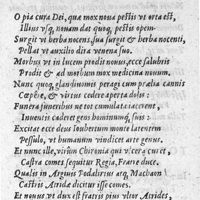 O pia cura Dei, qua mox noua pestis vt orta est,
Illius vsq; nouam dat quoq; pestis opem.
Surgit vt herba nocens, sua surgit & herba nocenti,
Pellat vt auxilio dira venena suo.
Morbus vt in lucem prodit nouus, ecce salubris
Prodit & ad morbum mox medicina nouum.
Nunc quoq; glandiminis peragi cum prælia cannis
Cœpêre, & virtus cedere aperta dolo:
Funera funeribus ne tot cumulata iacerent,
Inuentis caderet gens hominum suis:
Excitat ecce deus Ioubertum morte latentem
Pessulo, vt humanum vindicet arte genus.
Et nunc ille, virûm Chironia qui vlcera curet,
Castra comes sequitur Regia, Fratre duce.
Qualis in Argiuis Podalirius atq; Machaon
Castris Atridæ dicitur isse comes.
Et nonus vt dux est fratis pius vltor Atrides,